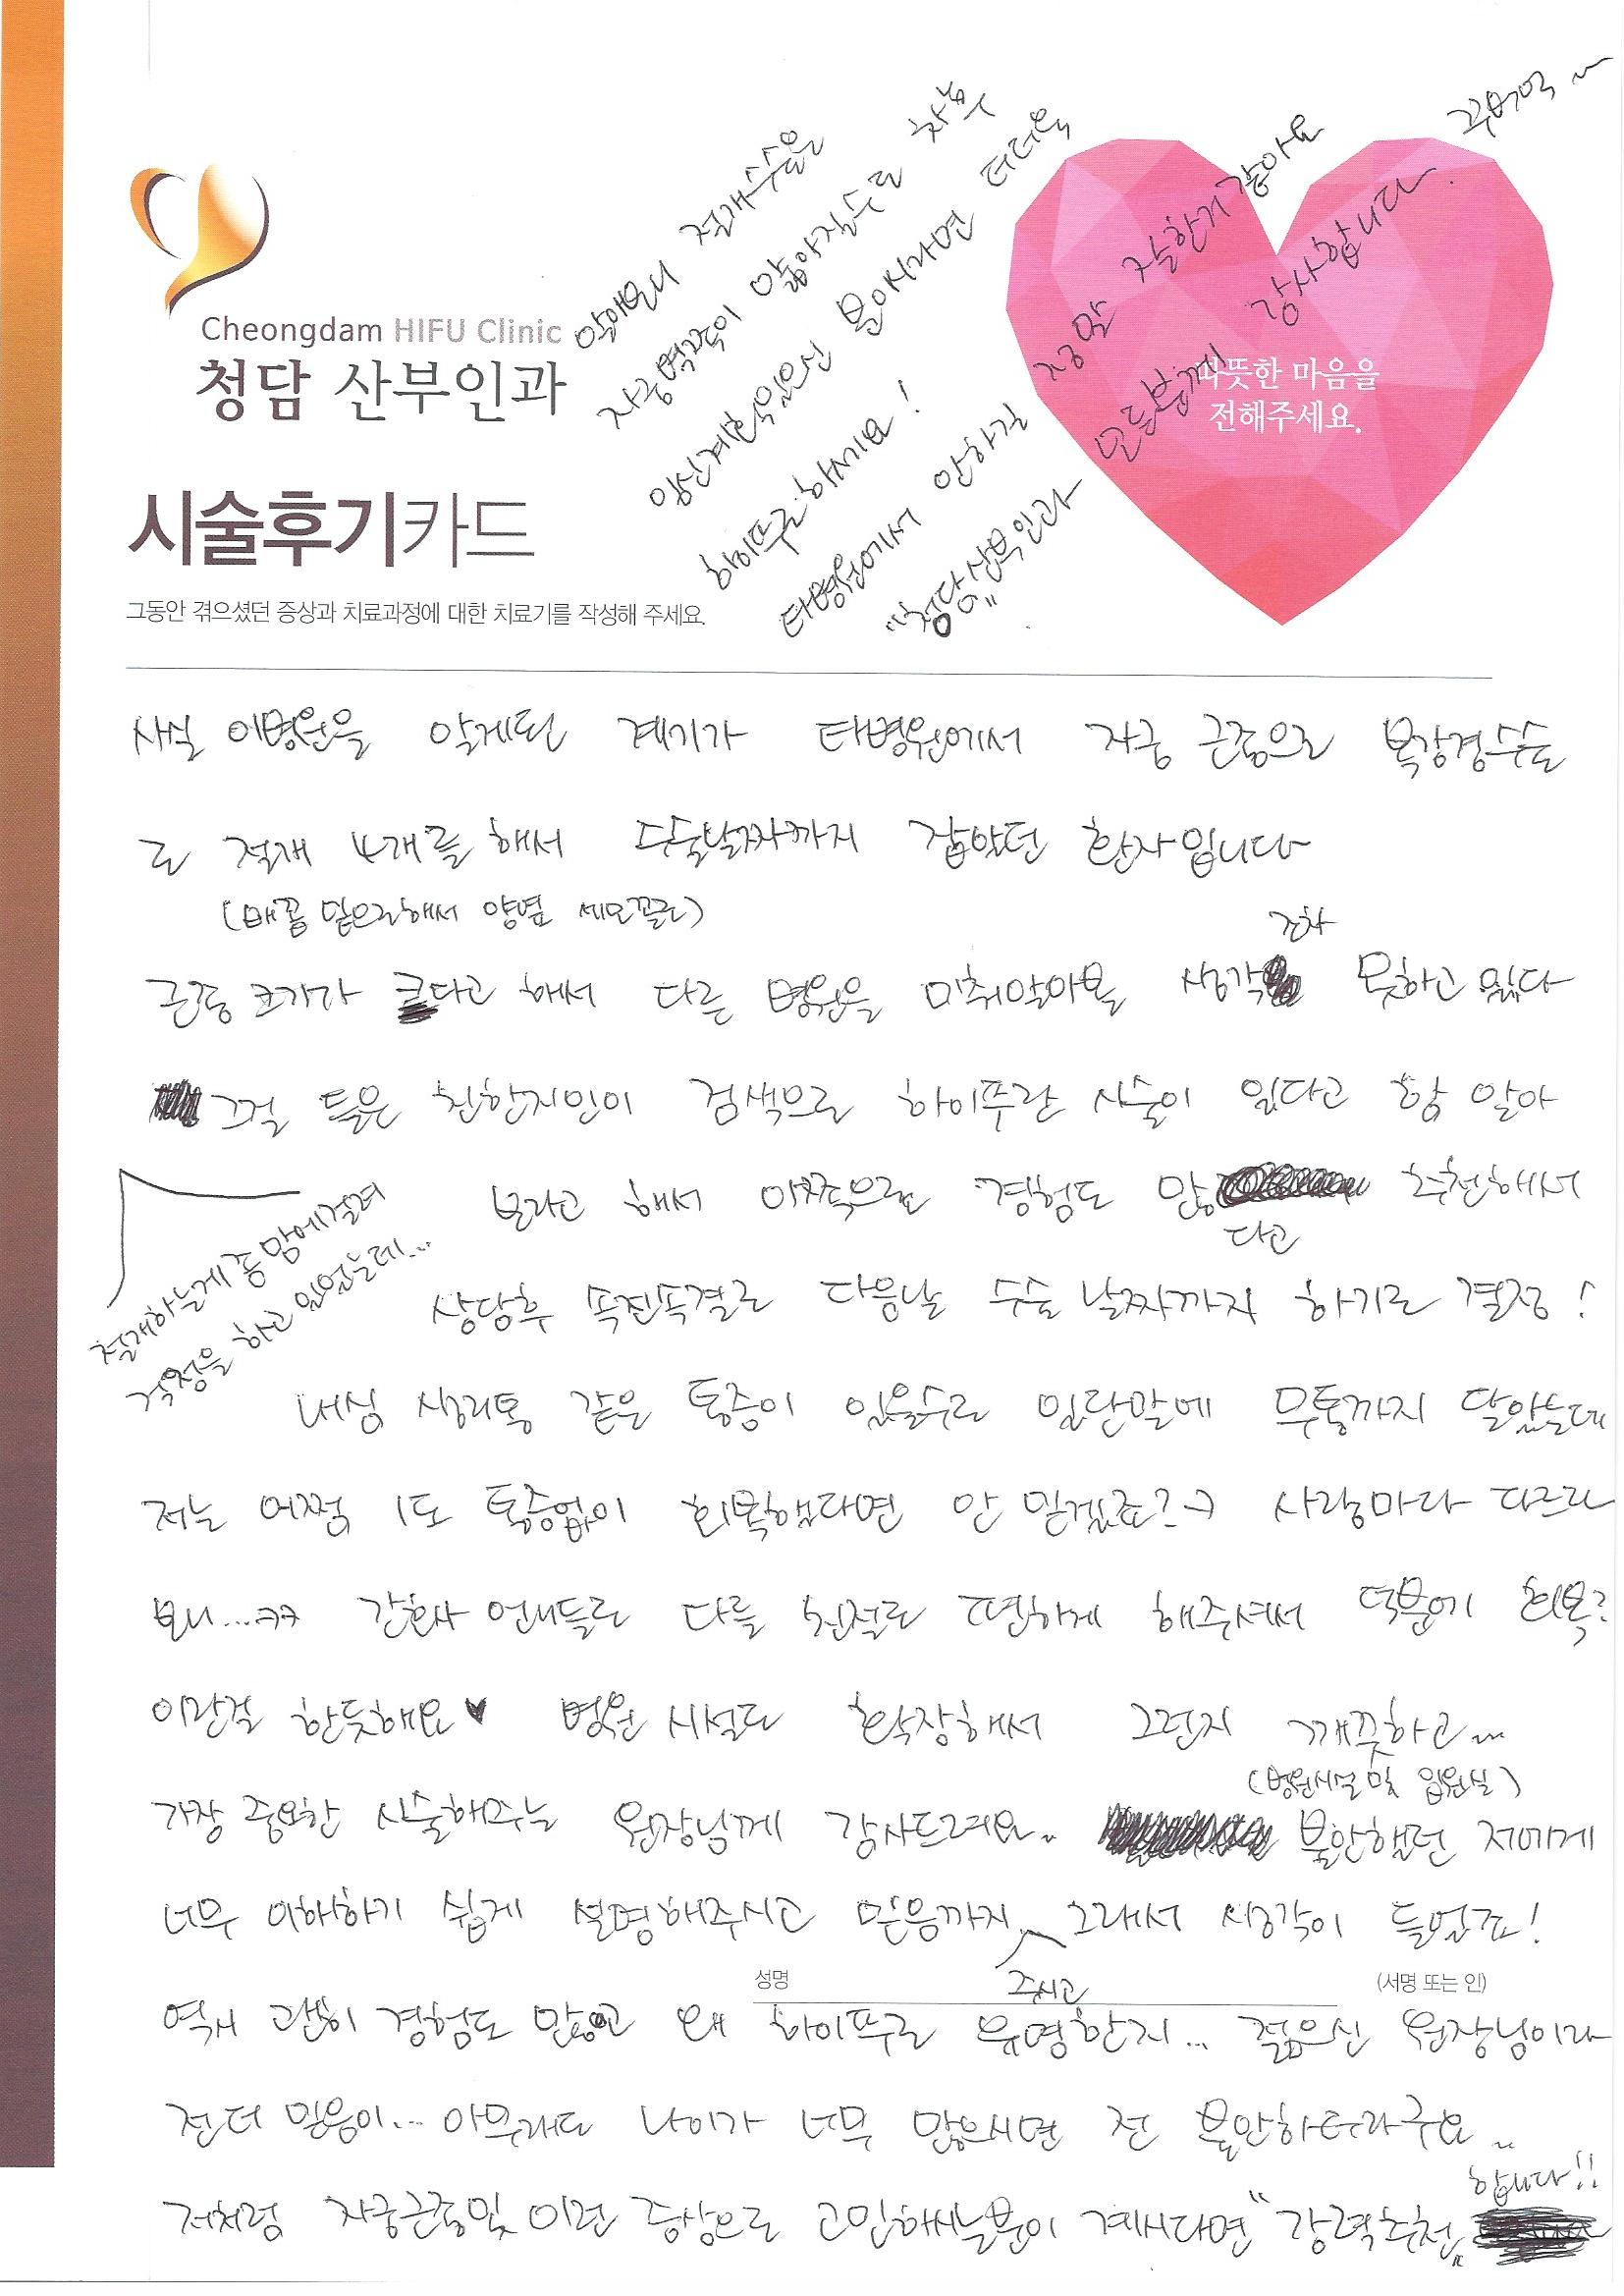 Cheongdam HIFU Clinic
청담 산부인과
시술후기카드
그동안 겪으셨던 증상과 치료과정에 대한 치료기를 작성해 주세요.
따뜻한 마음을
전해주세요.
알애보니 절개수술은
자궁벽쪽이 얇아질수록 차후
임신계획있으신 분이시라면 더더욱
하이푸로하세요!
타병원에서 안하길 정말 잘한거 같아요
"청담산부인과" 모든분께 감사합니다. 꾸벅 ~
사실 이병원을 알게된 계기가 타병원에서 자궁 근종으로 복강경수술
로 절개 4개를 해서 수술날짜까지 잡았던 환자입니다
(배꼽 밑으로해서 양옆 세모꼴로)
근종 크기가 크다고 해서 다른 병원을 미쳐알아볼 생각조차 못하고 있다
그걸 들은 친한지인이 검색으로 하이푸란 시술이 있다고 함 알아
보라고 해서 이쪽으로 경험도 많다고 추천해서
절개하는게 좀 맘에걸려
걱정을 하고 있었는데...
상담후 속전속결로 다음날 수술 날짜까지 하기로 결정!
내심 생리통 같은 통증이 있을수도 있단말에 무통까지 달았는데
저는 어쩜 1도 통증없이 회복했다면 안 믿겠죠? 사람마다 다르다
보니...ㅋㅋ 간호사 언니들도 다들 친절로 편하게 해주셔서 덕분에 회복?
이란걸 한듯해요♥ 병원 시설도 확장해서 그런지 깨끗하고~
(병원시설 및 입원실)
가장 중요한 시술해주는 원장님께 감사드려요.. 불안했던 저에게
너무 이해하기 쉽게 설명해주시고 믿음까지 주시고 그래서 생각이 들었죠!
성명 (서명 또는 인)
역시 괜히 경험도 많고 왜 하이푸로 유명한지... 젊으신 원장님이라
전더 믿음이... 아무래도 나이가 너무 많으시면 전 불안하더라구요..
저처럼 자궁근종및 이런 증상으로 고민하시는분이 계시다면 "강력추천" 합니다!!